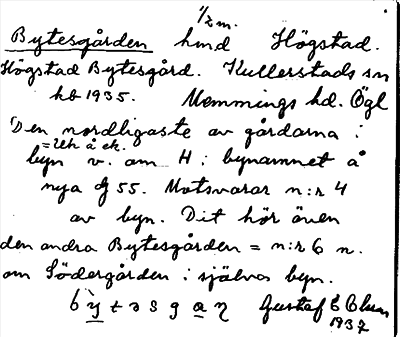 1/2 m.
Bytesgården hmd Högstad.
Högstad Bytesgård. Kullerstads sn
hb 1935. Memmings hd. Ögl
Den nordligaste av gårdarna i
= Ek å ek.
byn v. om H i bynamnet å
nya 55. Motsvarar n:r 4
av byn. Dit hör även
den andra Bytesgården = n:r 6 n.
om Södergården i själva byn.
Gustaf E
1937